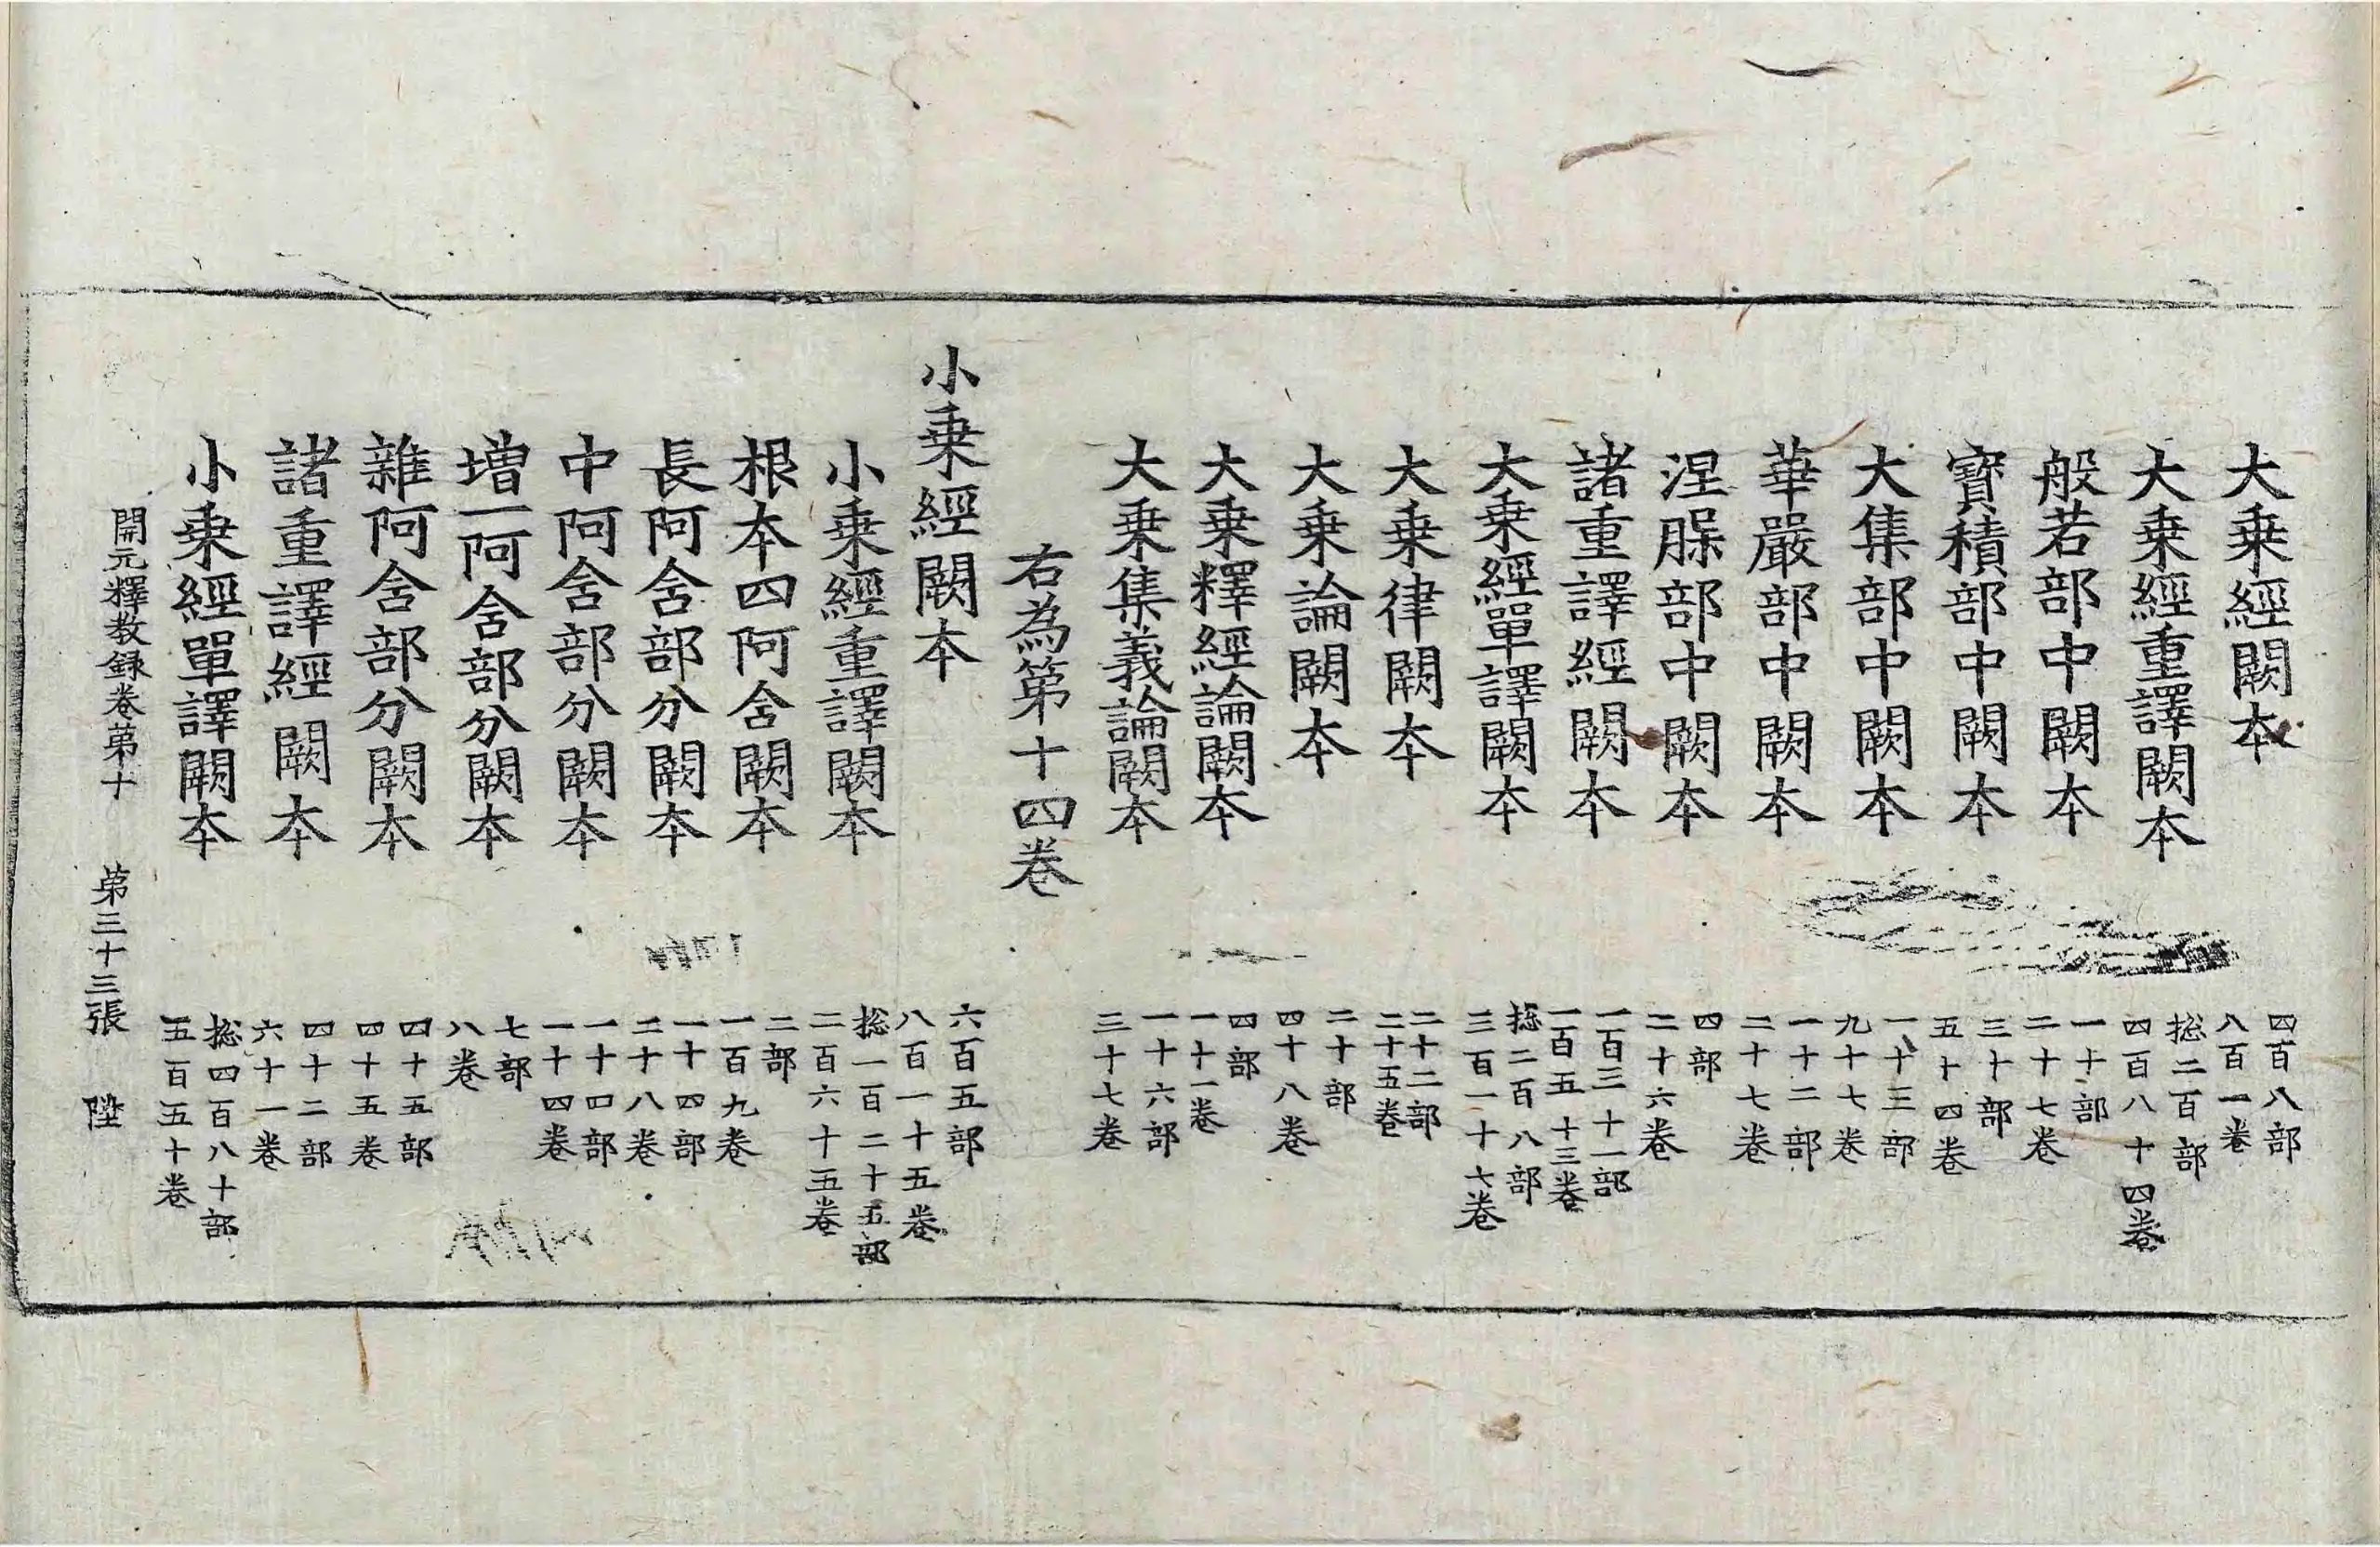 大乗經闕本 四百八部 八百一卷
大乗經重譯闕本 揔二百部 四百八十四卷
般若部中闕本 一十部 二十七卷
寶積部中闕本 三十部 五十四卷
大集部中闕本 一十三部 九十七卷
華嚴部中闕本 一十二部 二十七卷
涅槃部中闕本 四部 二十六卷
諸重譯經闕本 一百三十一部 一百五十三卷
大乗經單譯闕本 揔二百八部 三百一十七卷
大乗律闕本 二十二部 二十五卷
大乗論闕本 二十部 四十八卷
大乗釋經論闕本 四部 一十一卷
大乗集義論闕本 一十六部 三十七卷
右為第十四卷
小乗經闕本 六百五部 八百一十五卷
小乗經重譯闕本 揔一百二十五部 二百六十五卷
根本四阿含闕本 二部 一百九卷
長阿含部分闕本 一十四部 二十八卷
中阿含部分闕本 一十四部 一十四卷
增一阿含部分闕本 七部 八卷
雜阿含部分闕本 四十五部 四十五卷
諸重譯經闕本 四十二部 六十一卷
小乗經單譯闕本 揔四百八十部 五百五十卷
開元釋教録卷第十 第三十三張 陞